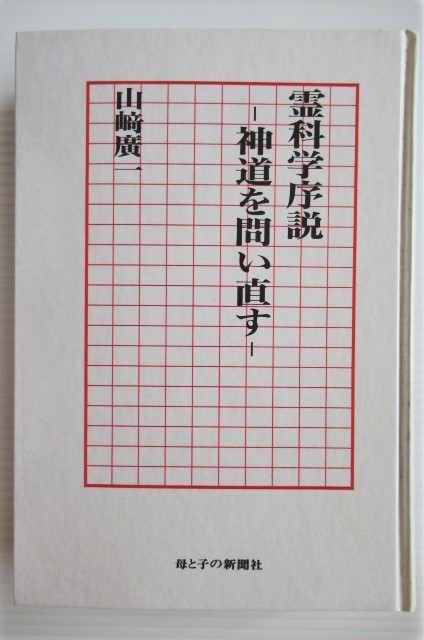 霊科学序説
－神道を問い直す－
山﨑廣一
母と子の新聞社